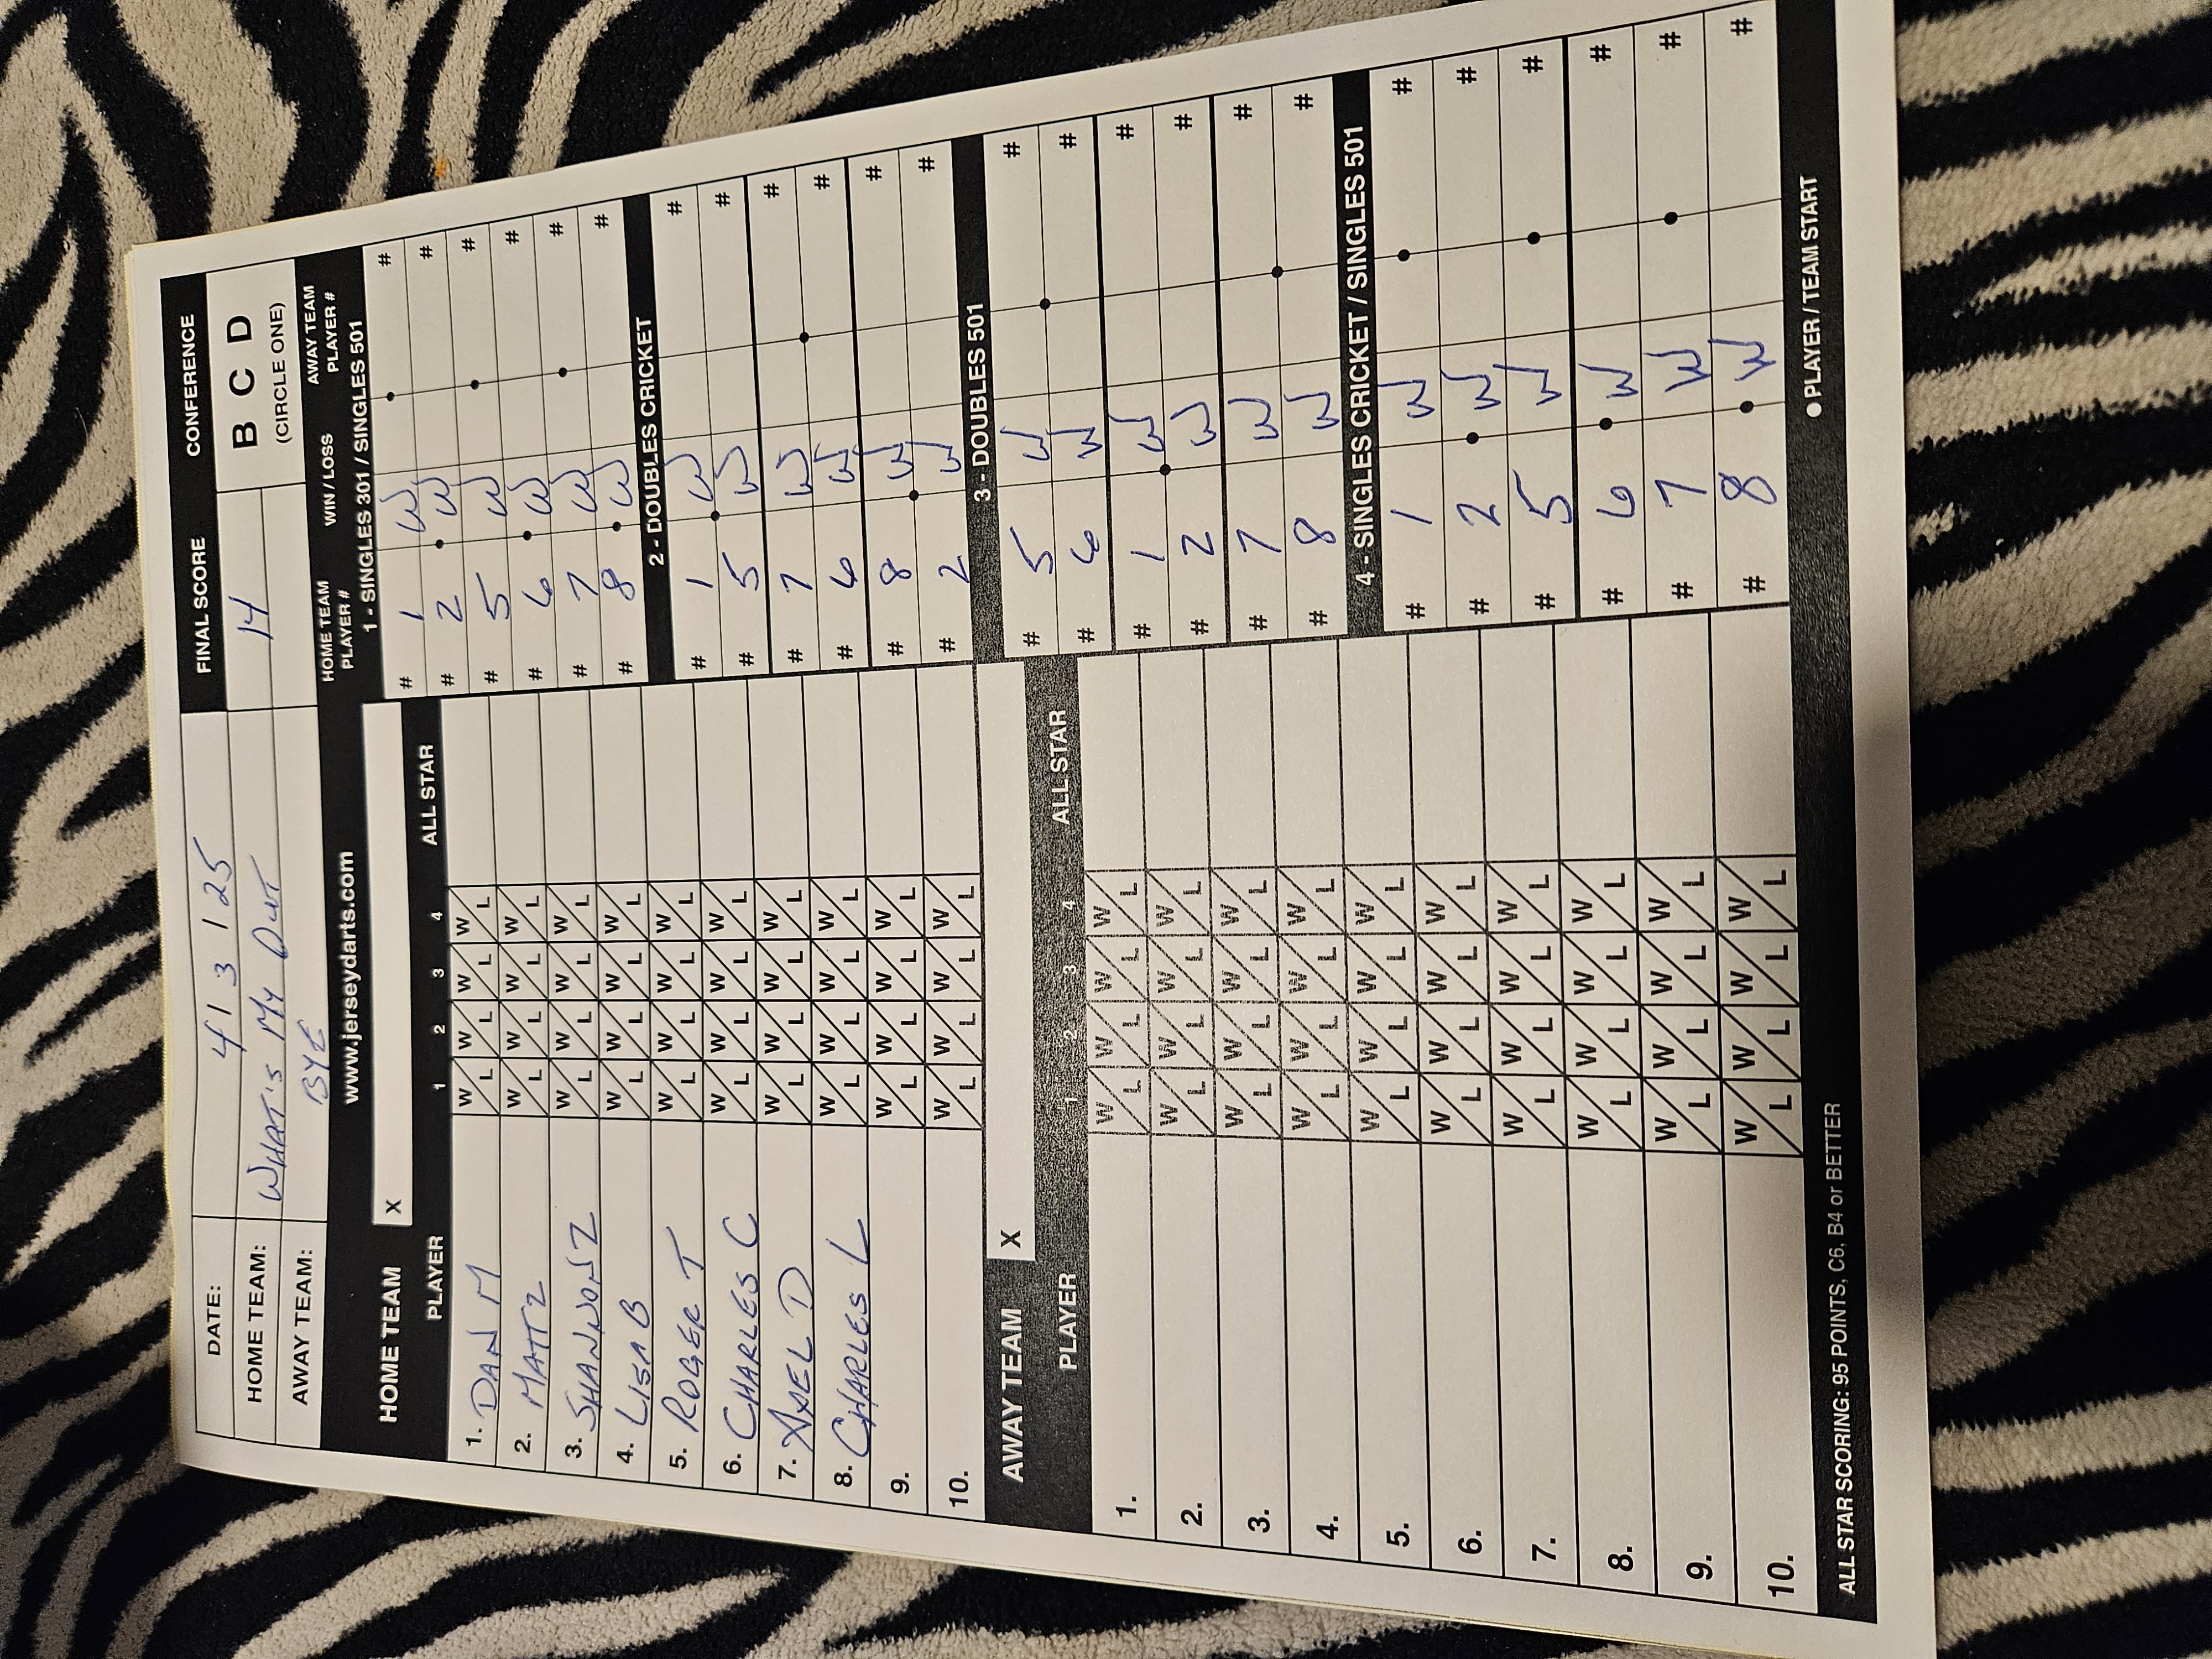 DATE: 4/3/25 FINAL SCORE CONFERENCE
HOME TEAM: WHAT'S MY OUT 14 B C D
AWAY TEAM: BYE (CIRCLE ONE)
www.jerseydarts.com
HOME TEAM X
PLAYER 1 2 3 4 ALL STAR
1. DAN M W/L W/L W/L W/L
2. MATT Z W/L W/L W/L W/L
3. SHANNON Z W/L W/L W/L W/L
4. LISA B W/L W/L W/L W/L
5. ROGER T W/L W/L W/L W/L
6. CHARLES C W/L W/L W/L W/L
7. AXEL D W/L W/L W/L W/L
8. CHARLES L W/L W/L W/L W/L
9. W/L W/L W/L W/L
10. W/L W/L W/L W/L
AWAY TEAM X
PLAYER 1 2 3 4 ALL STAR
1. W/L W/L W/L W/L
2. W/L W/L W/L W/L
3. W/L W/L W/L W/L
4. W/L W/L W/L W/L
5. W/L W/L W/L W/L
6. W/L W/L W/L W/L
7. W/L W/L W/L W/L
8. W/L W/L W/L W/L
9. W/L W/L W/L W/L
10. W/L W/L W/L W/L
HOME TEAM PLAYER # WIN / LOSS AWAY TEAM PLAYER #
1 - SINGLES 301 / SINGLES 501
# 1 W #
# 2 W #
# 5 W #
# 6 W #
# 7 W #
# 8 W #
2 - DOUBLES CRICKET
# 1 W #
# 5 W #
# 7 W #
# 6 W #
# 8 W #
# 2 W #
3 - DOUBLES 501
# 5 W #
# 6 W #
# 1 W #
# 2 W #
# 7 W #
# 8 W #
4 - SINGLES CRICKET / SINGLES 501
# 1 W #
# 2 W #
# 5 W #
# 6 W #
# 7 W #
# 8 W #
ALL STAR SCORING: 95 POINTS, C6, B4 or BETTER ● PLAYER / TEAM START